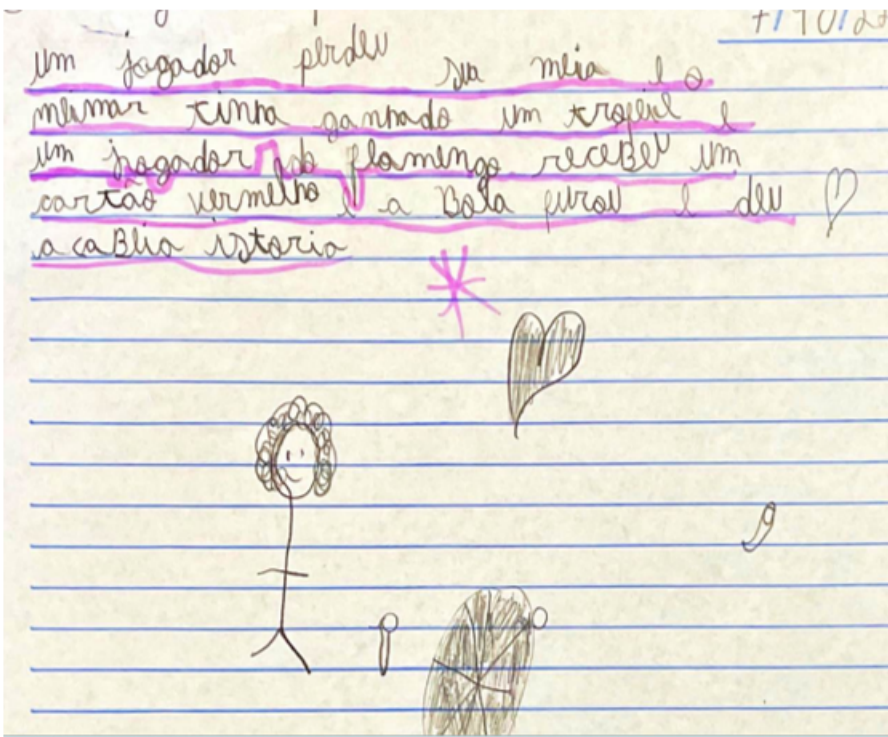 um jogador perdeu sua meia e o
meimar tinha ganhado um trofeul e
um jogador do flamengo recebeu um
cartão vermelho e a Bola furou e deu
acaBlia istoria